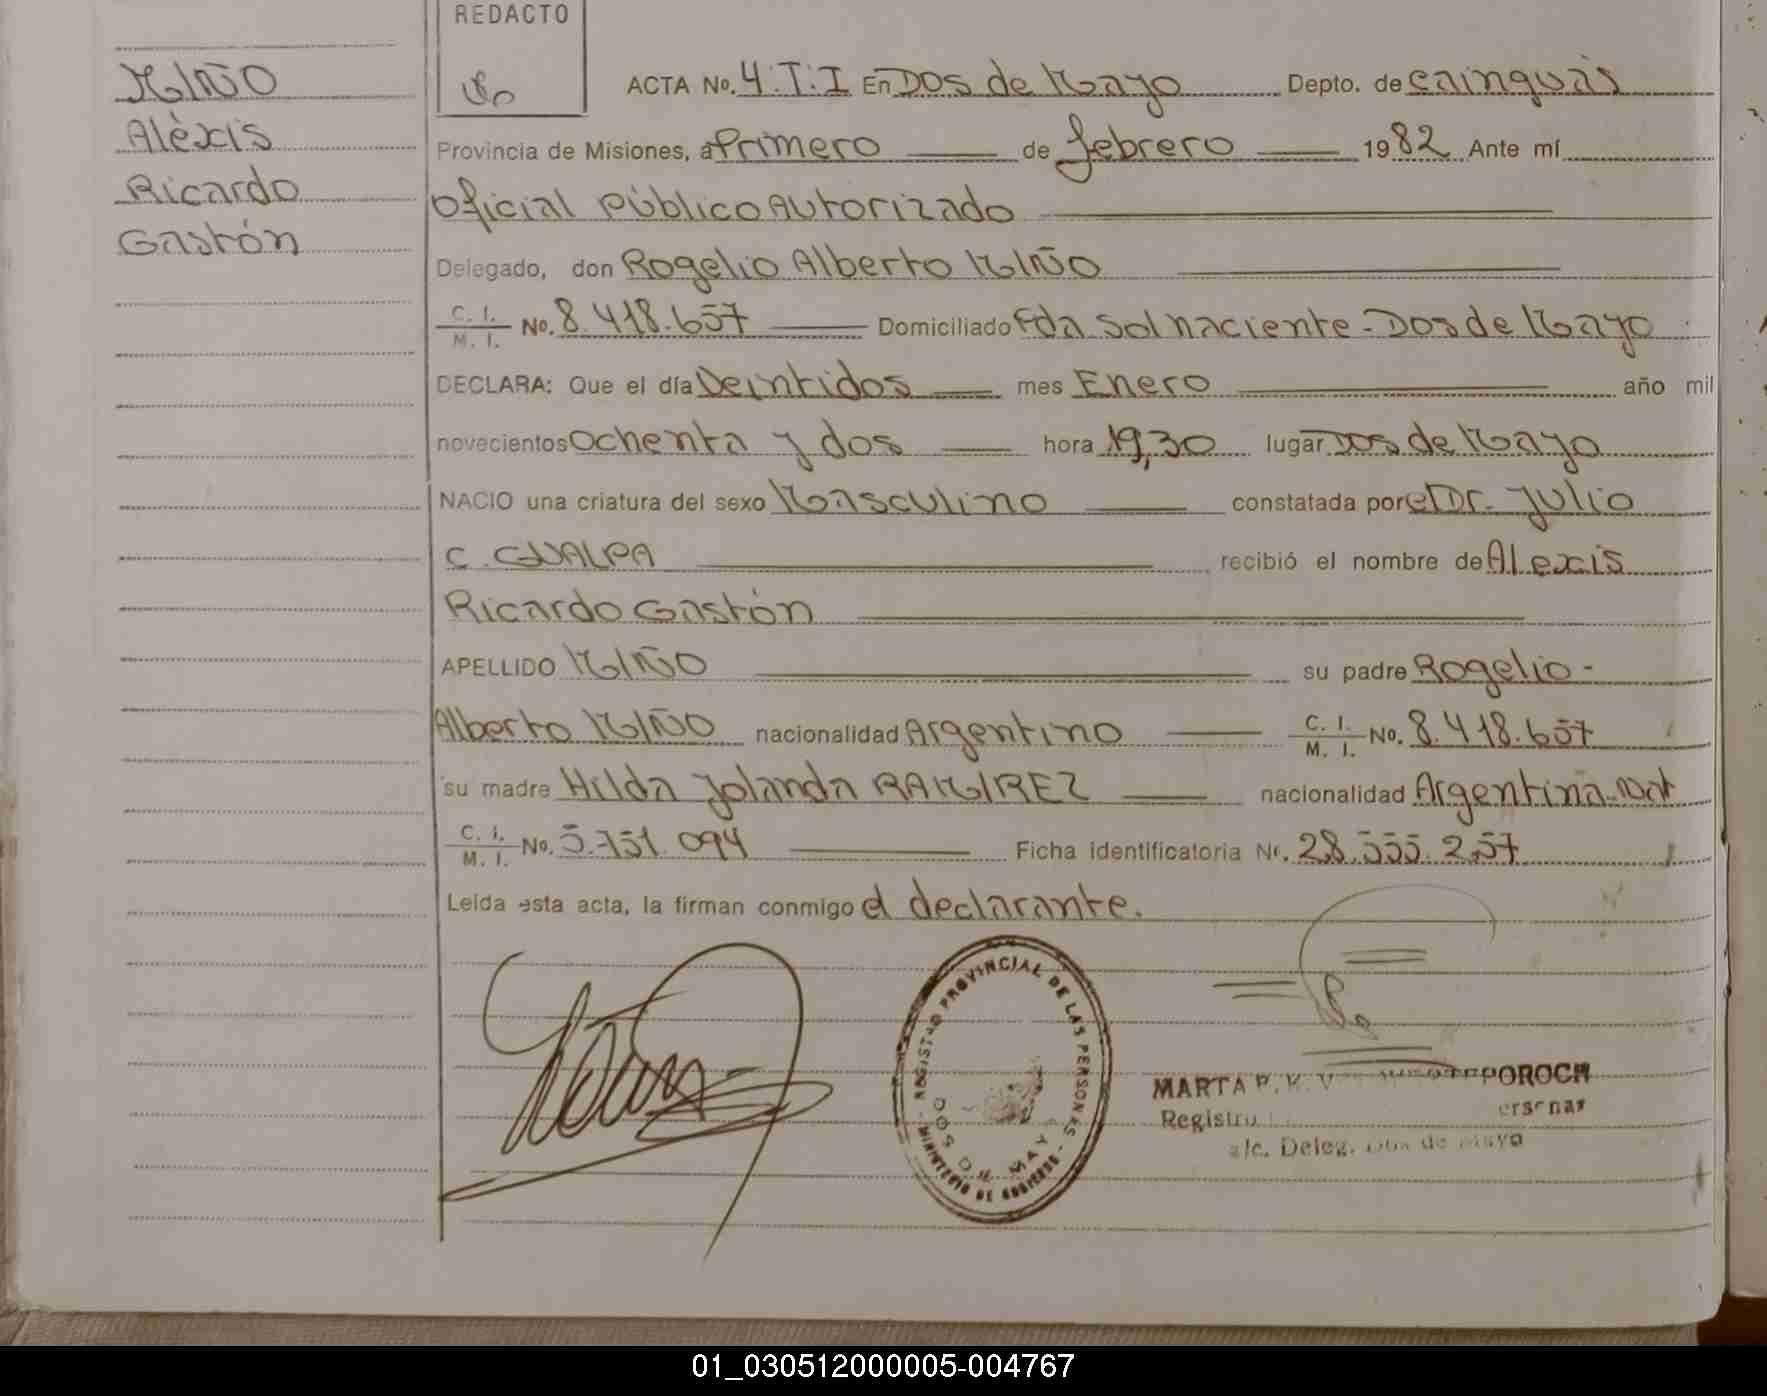 REDACTO
MIÑO
Aléxis
Ricardo
Gastón
ACTA No. 4.T.I En Dos de Mayo Depto. de cainguás
Provincia de Misiones, a Primero de febrero 1982 Ante mí
Oficial Público Autorizado
Delegado, don Rogelio Alberto MIÑO
C. I. / M. I. No. 8.418.657 Domiciliado Eda Sol naciente - Dos de Mayo
DECLARA: Que el día Veintidos mes Enero año mil
novecientos Ochenta y dos hora 19,30 lugar Dos de Mayo
NACIO una criatura del sexo Masculino constatada por el Dr. Julio
C. GUALPA recibió el nombre de Alexis
Ricardo Gastón
APELLIDO MIÑO su padre Rogelio -
Alberto MIÑO nacionalidad Argentino C. I. / M. I. No. 8.418.657
su madre Hilda Yolanda RAMIREZ nacionalidad Argentina-Nat
C. I. / M. I. No. 5.751.094 Ficha identificatoria No. 28.555.257
Leída esta acta, la firman conmigo el declarante.
REGISTRO PROVINCIAL DE LAS PERSONAS - MINISTERIO DE GOBIERNO -
DOS DE MAYO
MARTA POROCH
Registro
a/c. Deleg. Dos de Mayo
01_030512000005-004767